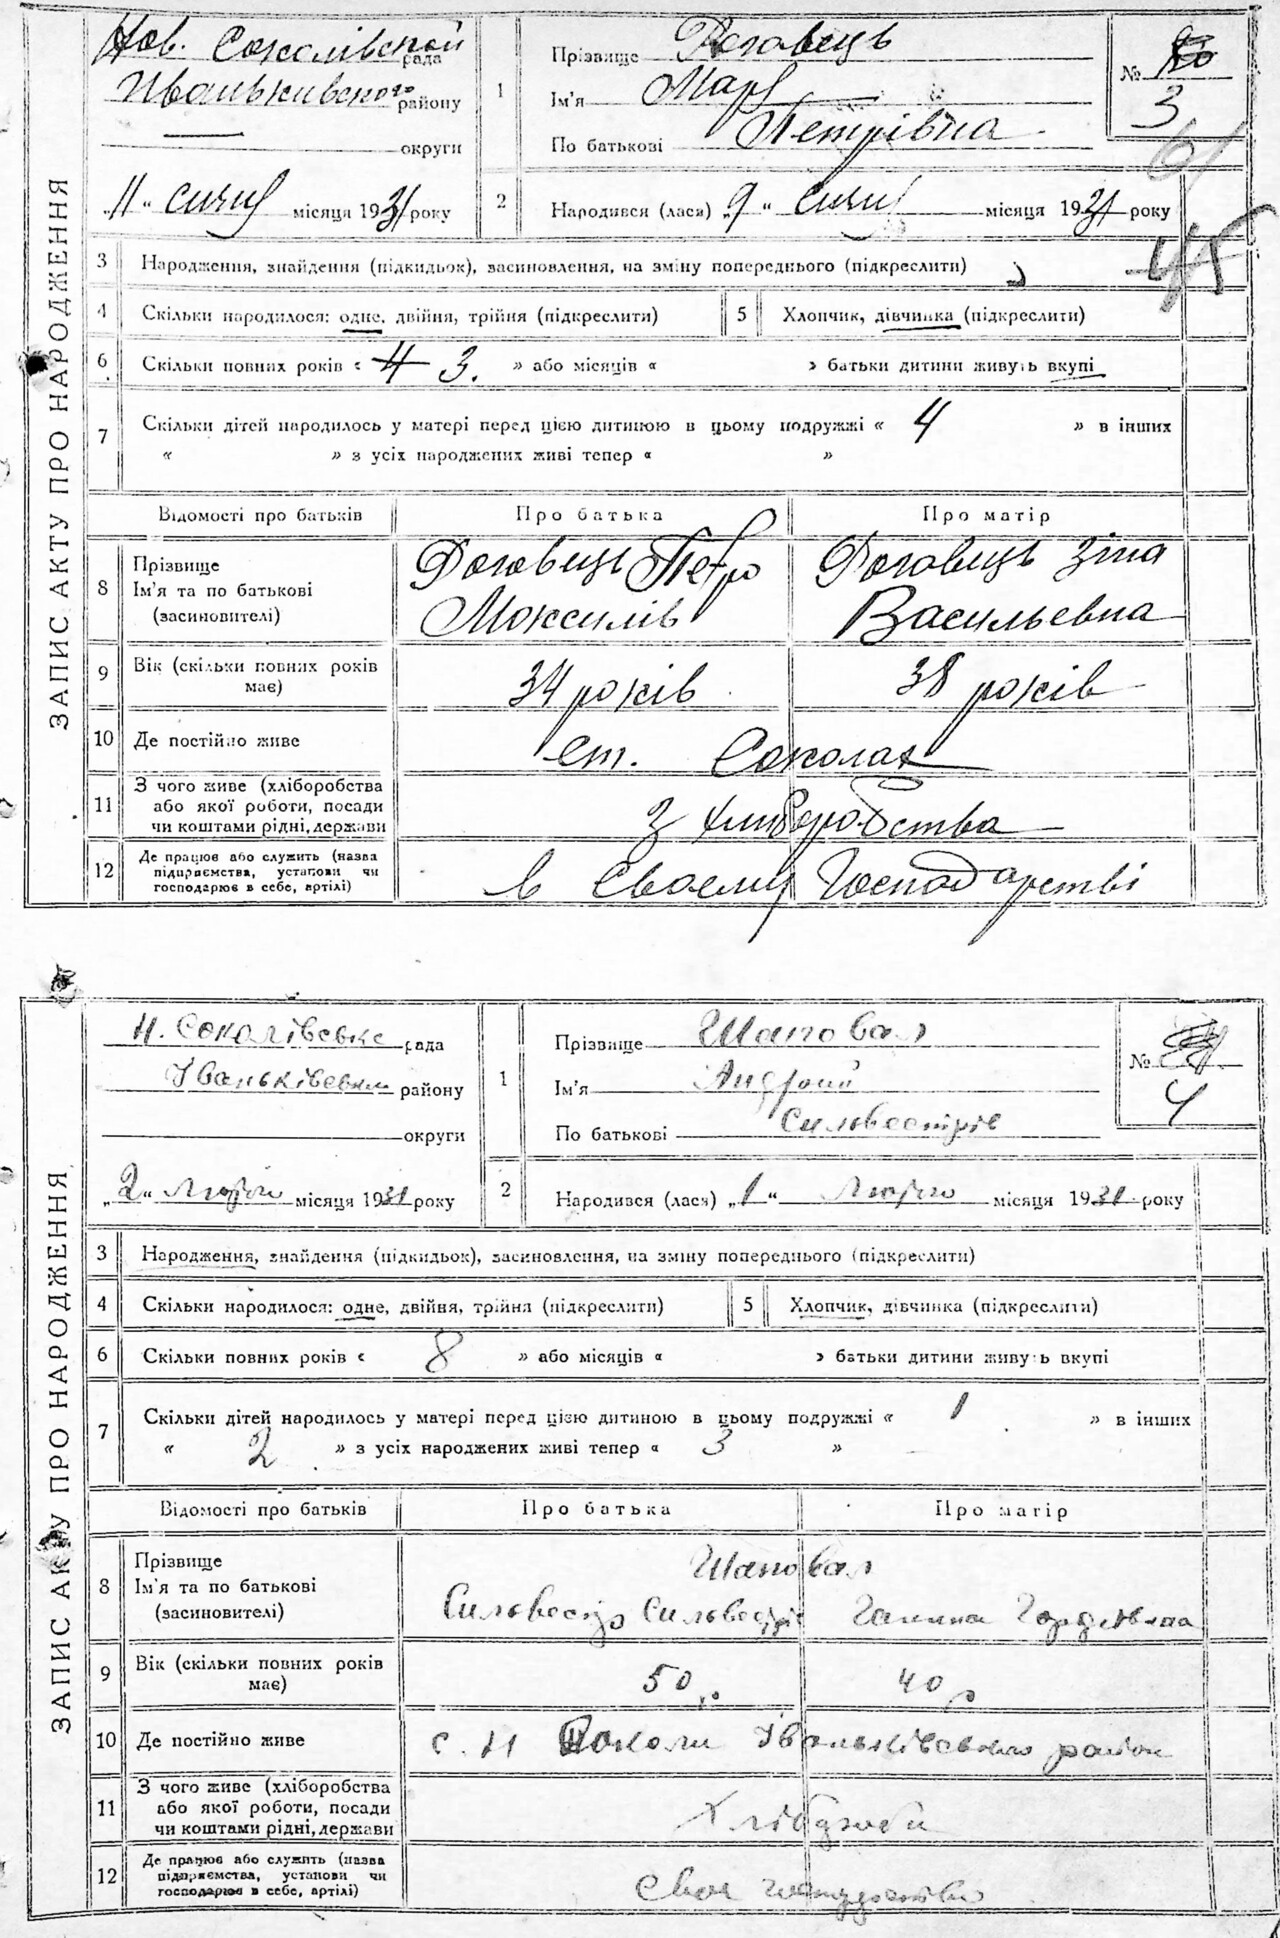 ЗАПИС АКТУ ПРО НАРОДЖЕННЯ
Нов. Соколівской рада
Иваньківского району
округи
„11“ січня місяця 1931 року
1
Прізвище Роговець
Ім'я Мар
По батькові Петрівна
№
3
61
45
2
Народився (лася) „9“ січня місяця 1931 року
3 Народження, знайдення (підкидьок), засиновлення, на зміну попереднього (підкреслити)
4 Скільки народилося: одне, двійня, трійня (підкреслити) 5 Хлопчик, дівчинка (підкреслити)
6 Скільки повних років « 4 3. » або місяців « » батьки дитини живуть вкупі
7 Скільки дітей народилось у матері перед цією дитиною в цьому подружжі « 4 » в інших
« » з усіх народжених живі тепер « »
Відомості про батьків Про батька Про матір
8 Прізвище
Ім'я та по батькові
(засиновителі)
Роговець Петро
Моксимів
Роговець Зіна
Васильевна
9 Вік (скільки повних років має) 34 років 38 років
10 Де постійно живе ст. Соколах
11 З чого живе (хліборобства
або якої роботи, посади
чи коштами рідні, держави
З хлиборобства
12 Де працює або служить (назва
підприємства, установи чи
господарює в себе, артілі)
в своему господарстві
ЗАПИС АКТУ ПРО НАРОДЖЕННЯ
Н. Соколівська рада
Іваньківськи району
округи
„2“ лютого місяця 1931 року
1
Прізвище Шаповал
Ім'я Андрій
По батькові Сильвестрів
№
4
2
Народився (лася) „1“ лютого місяця 1931 року
3 Народження, знайдення (підкидьок), засиновлення, на зміну попереднього (підкреслити)
4 Скільки народилося: одне, двійня, трійня (підкреслити) 5 Хлопчик, дівчинка (підкреслити)
6 Скільки повних років « 8 » або місяців « » батьки дитини живуть вкупі
7 Скільки дітей народилось у матері перед цією дитиною в цьому подружжі « 1 » в інших
« 2 » з усіх народжених живі тепер « 3 »
Відомості про батьків Про батька Про матір
8 Прізвище
Ім'я та по батькові
(засиновителі)
Шаповал
Сильвестр Сильвестрів Ганна
9 Вік (скільки повних років має) 50 р 40 р
10 Де постійно живе с. Н Соколи Іваньківського район
11 З чого живе (хліборобства
або якої роботи, посади
чи коштами рідні, держави
Хлібороби
12 Де працює або служить (назва
підприємства, установи чи
господарює в себе, артілі)
Своє господарство